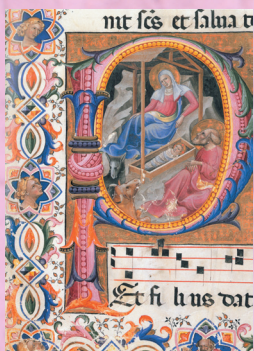 int scs et salua t
Et fi li us dat